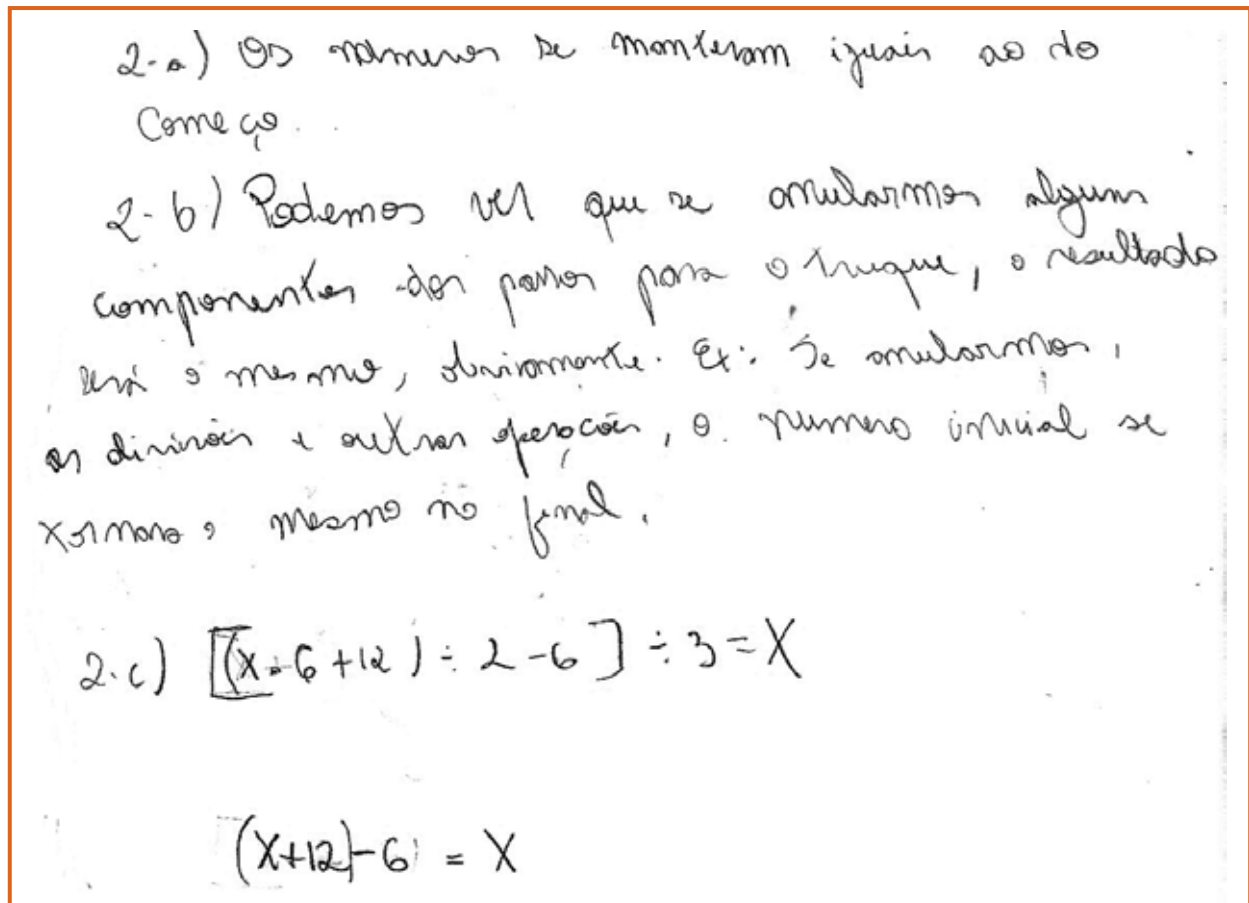 2-a) Os números se manteram iguais ao do
Começo.
2-b) Podemos ver que se anularmos alguns
componentes dos passos para o truque, o resultado
será o mesmo, obviamente. Ex: Se anularmos,
as divisões e outras operações, o numero inicial se
tornara o mesmo no final.
2.c) [(X.6+12) ÷ 2-6] ÷ 3=X
(X+12)-6 = X